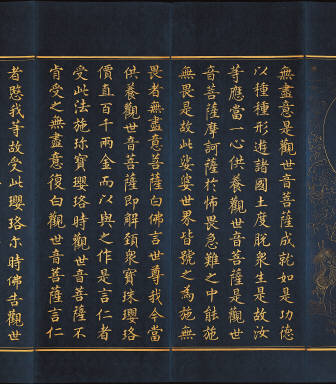 無盡意是觀世音菩薩成就如是功德
以種種形遊諸國土度脫衆生是故汝
等應當一心供養觀世音菩薩是觀世
音菩薩摩訶薩於怖畏急難之中能施
無畏是故此娑婆世界皆號之為施無
畏者無盡意菩薩白佛言世尊我今當
供養觀世音菩薩即解頸衆寶珠瓔珞
價直百千兩金而以與之作是言仁者
受此法施珎寶瓔珞時觀世音菩薩不
肯受之無盡意復白觀世音菩薩言仁
者愍我等故受此瓔珞尒時佛告觀世